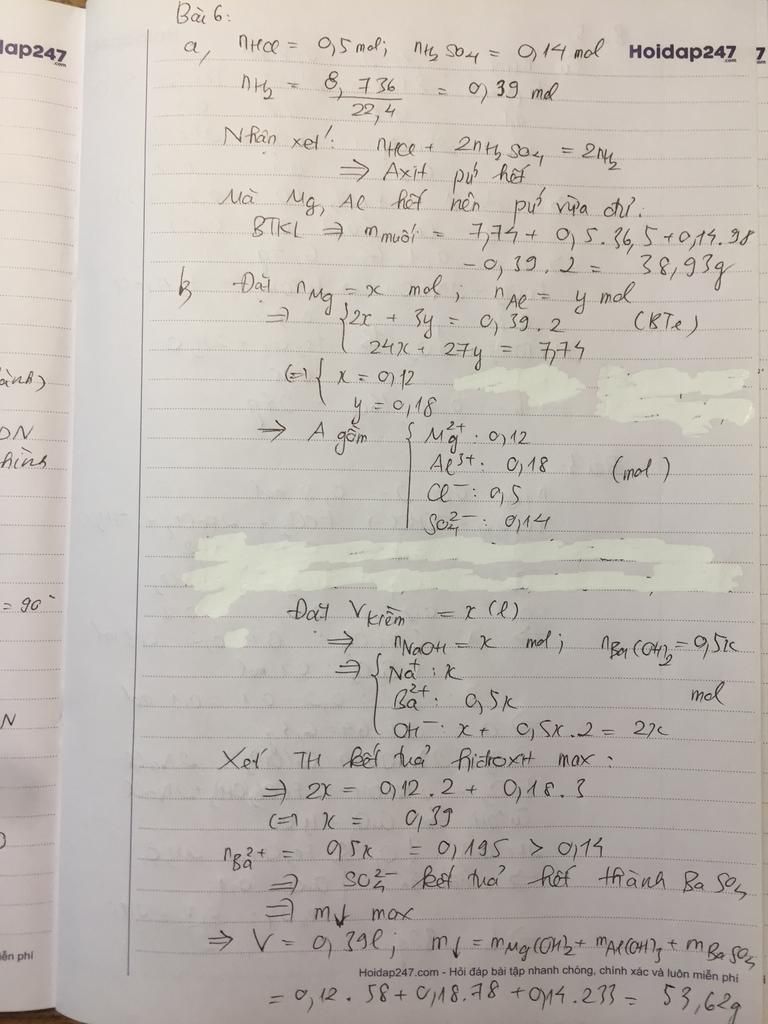 Bài 6:
lap247
.com
a, nHCl = 0,5 mol; nH2SO4 = 0,14 mol Hoidap247 7
.com
nH2 = 8,736 / 22,4 = 0,39 mol
Nhận xét: nHCl + 2nH2SO4 = 2nH2
⇒ Axit pứ hết
Mà Mg, Al hết nên pứ vừa đủ.
BTKL ⇒ m muối = 7,74 + 0,5.36,5 + 0,14.98
- 0,39.2 = 38,93g
b, Đặt nMg = x mol; nAl = y mol
⇒ { 2x + 3y = 0,39.2 (BTe)
24x + 27y = 7,74
(=) { x = 0,12
y = 0,18
⇒ A gồm { Mg2+: 0,12
Al3+: 0,18 (mol)
Cl-: 0,5
SO4 2-: 0,14
Đặt V kiềm = x (l)
⇒ nNaOH = x mol; nBa(OH)2 = 0,5x
⇒ { Na+: x
Ba2+: 0,5x mol
OH-: x + 0,5x.2 = 2x
Xét TH kết tuả hidroxit max:
⇒ 2x = 0,12.2 + 0,18.3
(=) x = 0,39
nBa2+ = 0,5x = 0,195 > 0,14
⇒ SO4 2- kết tuả hết thành BaSO4
⇒ m↓ max
⇒ V = 0,39l; m↓ = mMg(OH)2 + mAl(OH)3 + mBaSO4
Hoidap247.com - Hỏi đáp bài tập nhanh chóng, chính xác và luôn miễn phí
= 0,12.58 + 0,18.78 + 0,14.233 = 53,62g
ành)
DN
hình
= 90°
N
iễn phí